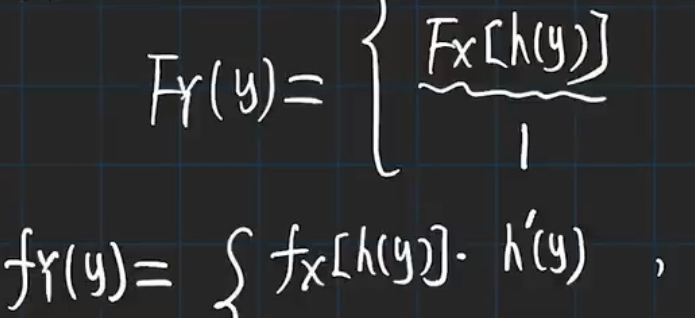 F_Y(y)= { F_X[h(y)]
1
f_Y(y)= { f_X[h(y)]· h'(y) ,